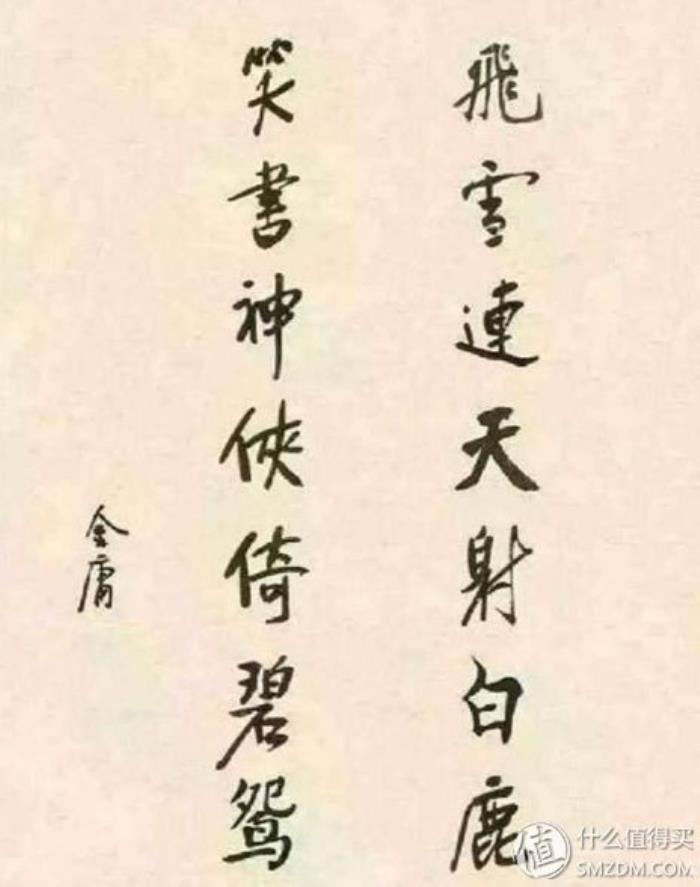 飛雪連天射白鹿
笑書神俠倚碧鴛
金庸
值 什么值得买
SMZDM.COM